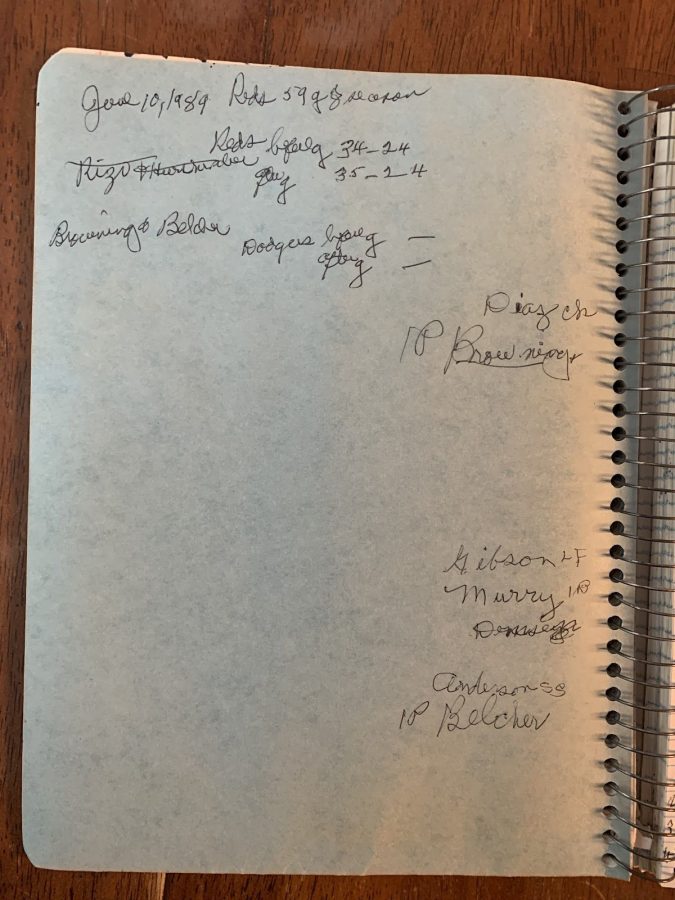 June 10, 1989 Reds 59 g of season
Reds before g 34-24
Rizo &
after g 35-24
Browning & Belcher
Dodgers before g —
after g —
Diaz ch
1P Browning
Gibson LF
Murry 1B
Dempsey
Anderson SS
1P Belcher